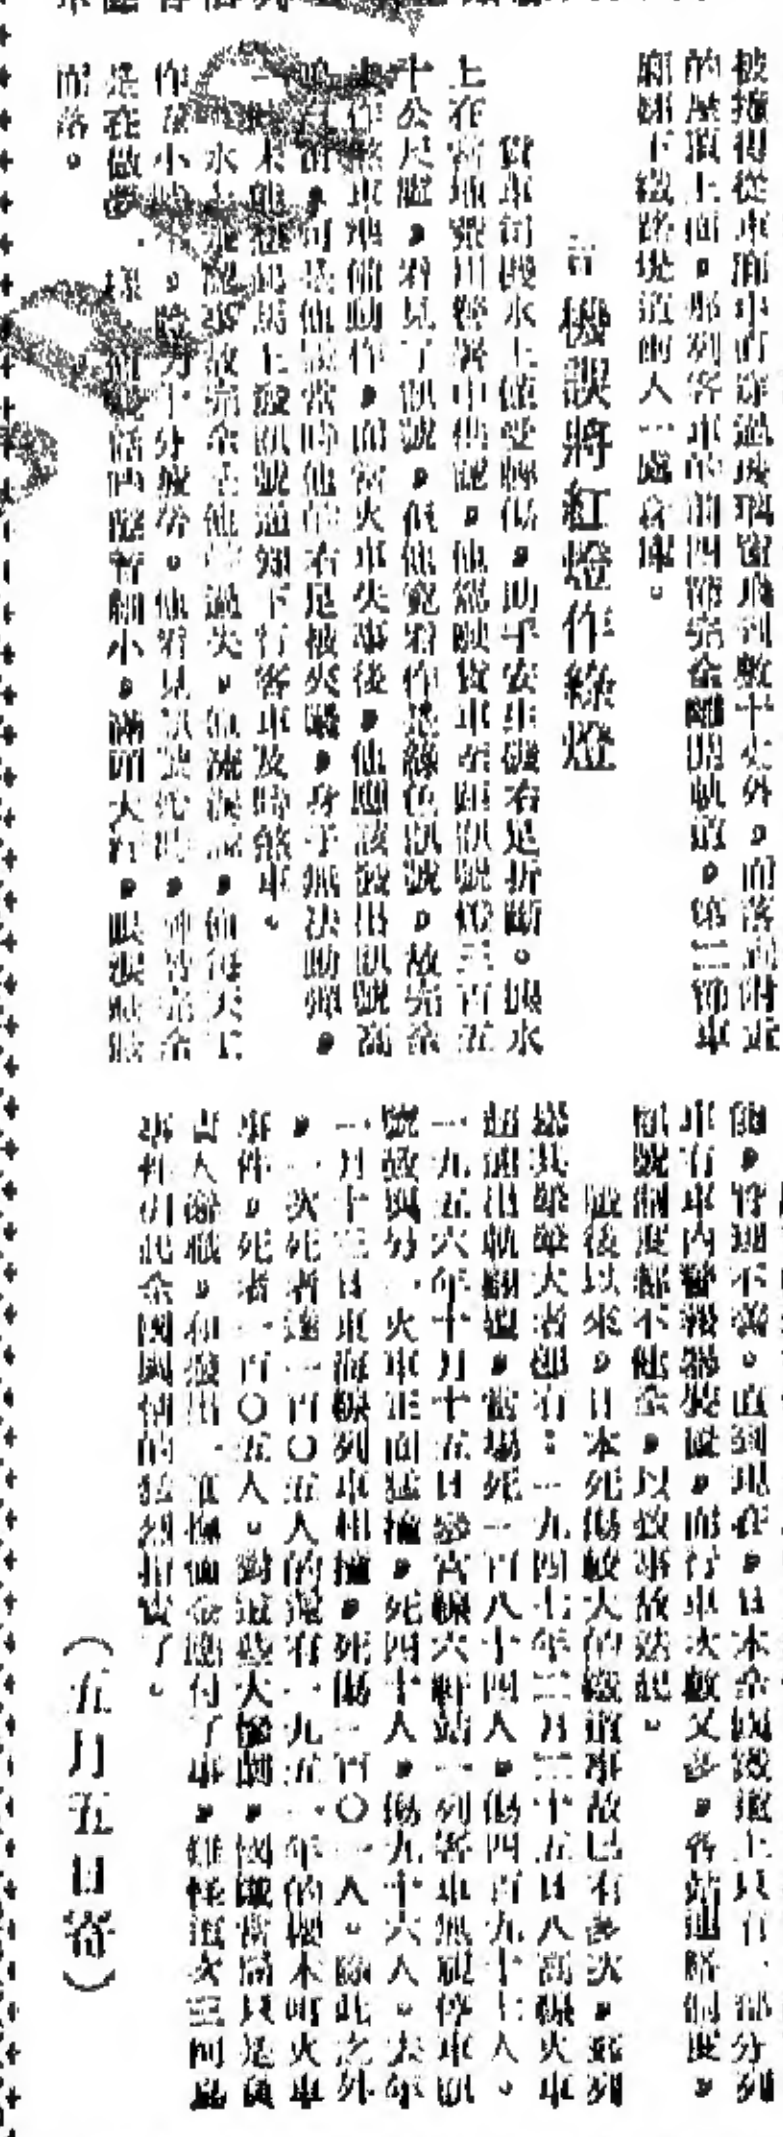 被撞得從車廂中直穿過玻璃窗飛到數十丈外，而落到附近
的屋頂上面。那列客車的前四節完全離開軌道，第三節車
廂綁下鐵路堤道
司機誤將紅燈作綠燈
貨車司機水上僅受輕傷，助手安生破右足折斷。據水
上在當地荒川警署中供認，他駕駛貨車至距訊號燈三百五
十公尺處，看見了訊號，但他竟看作是綠色訊號，故完全
未作煞車準備動作，而當火車失事後，他應該發出訊號高
鳴汽笛，可是他說當時他的右足被夾縛，身子無法動彈，
一時未能想起馬上發訊號通知下行客車及時煞車。
水上承認事故完全是他的過失，他流淚說，他每天工
作五小時，
十分疲勞。他看見訊號燈時，神智完全
是在做夢一樣。
滿頭大汗，眼淚點點
而落。
能，管理不善。直到現在，日本全國鐵道上只有一部分列
車有車內警報器裝設，而行車次數又多，各站連絡制度、
訊號制度都不健全，以致事故迭起。
戰後以來，日本死傷較大的鐵道事故已有多次，茲列
舉其犖犖大者卽有：一九四七年二月二十五日八高線火車
超速出軌翻覆，當場死一百八十四人，傷四百九十七人。
一九五六年十月十五日參宮線六軒站一列客車無視停車訊
號致與另一火車正面猛撞，死四十人，傷九十六人。去年
一月十三日東海線列車相撞，死傷一百〇一人。除此之外
，一次死者達一百〇五人的還有一九五一年的櫻木町火車
事件，死者一百〇五人。對這些大慘劇，國鐵當局只是負
責人辭職，和發出一筆撫卹金應付了事，難怪這次三河島
事件引起全國輿情的猛烈指責了。
（五月五日寄）